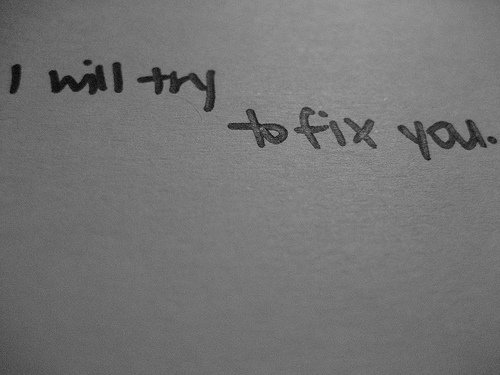 I will try
to fix you.